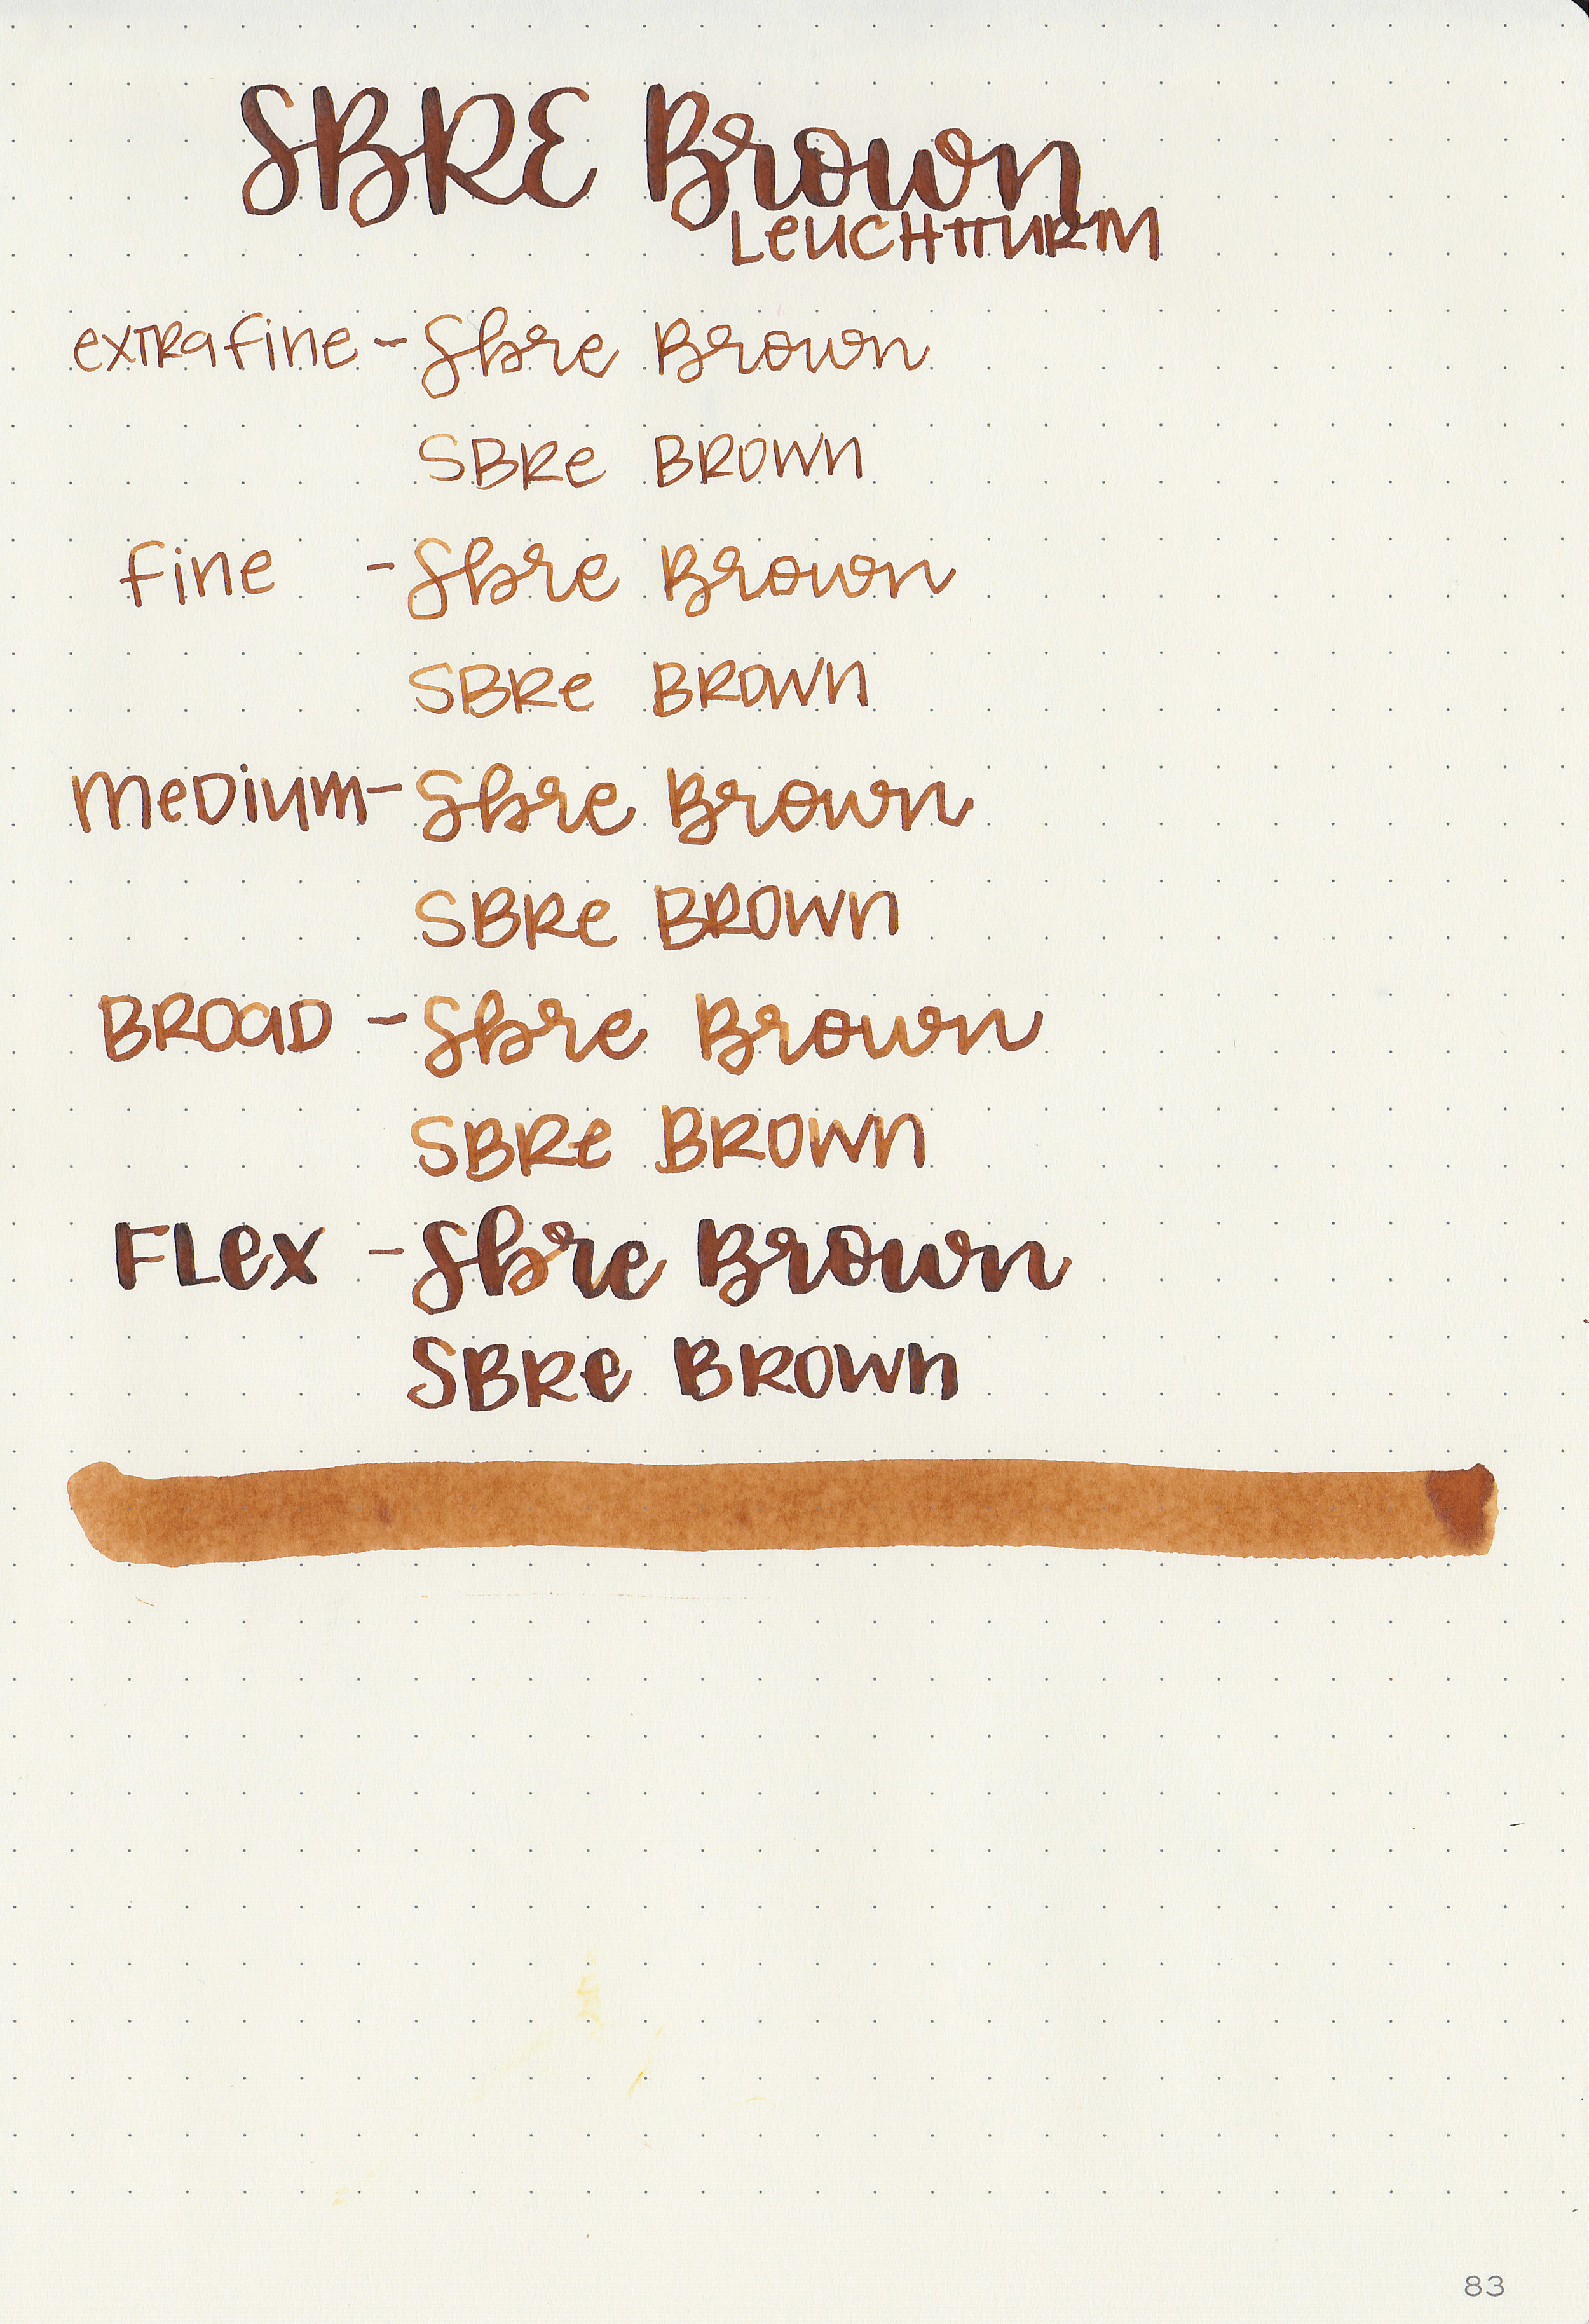 SBRE Brown
LeUCHTTURM
exTRafine - Sbre Brown
SBRe BROWN
fine - Sbre Brown
SBRe BROWN
MeDiuM - Sbre Brown
SBRe BROWN
BROaD - Sbre Brown
SBRe BROWN
FLex - Sbre Brown
SBRe BROWN
83